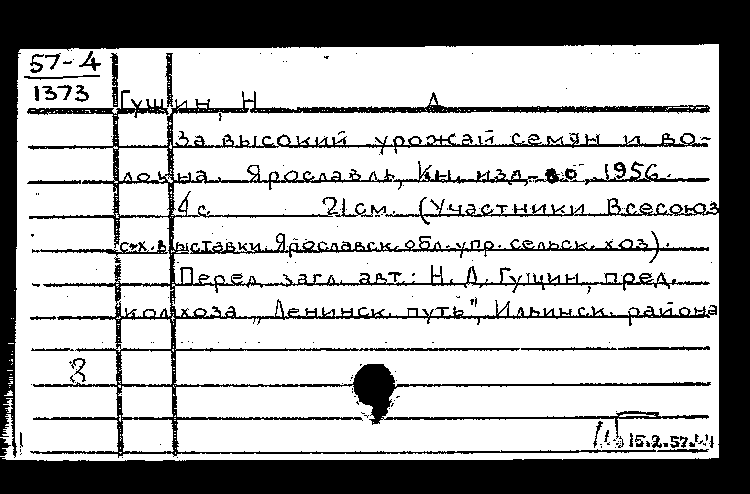 57-4
1373
Гущин, Н Д
За высокий урожай семян и во-
локна. Ярославль, Кн. изд-во, 1956.
4 с 21 см. (Участники Всесоюз
с-х. выставки. Ярославск. обл. упр. сельск. хоз).
Перед загл. авт.: Н. Д. Гущин, пред.
колхоза „Ленинск. путь", Ильинск. района
8
15.2.57.